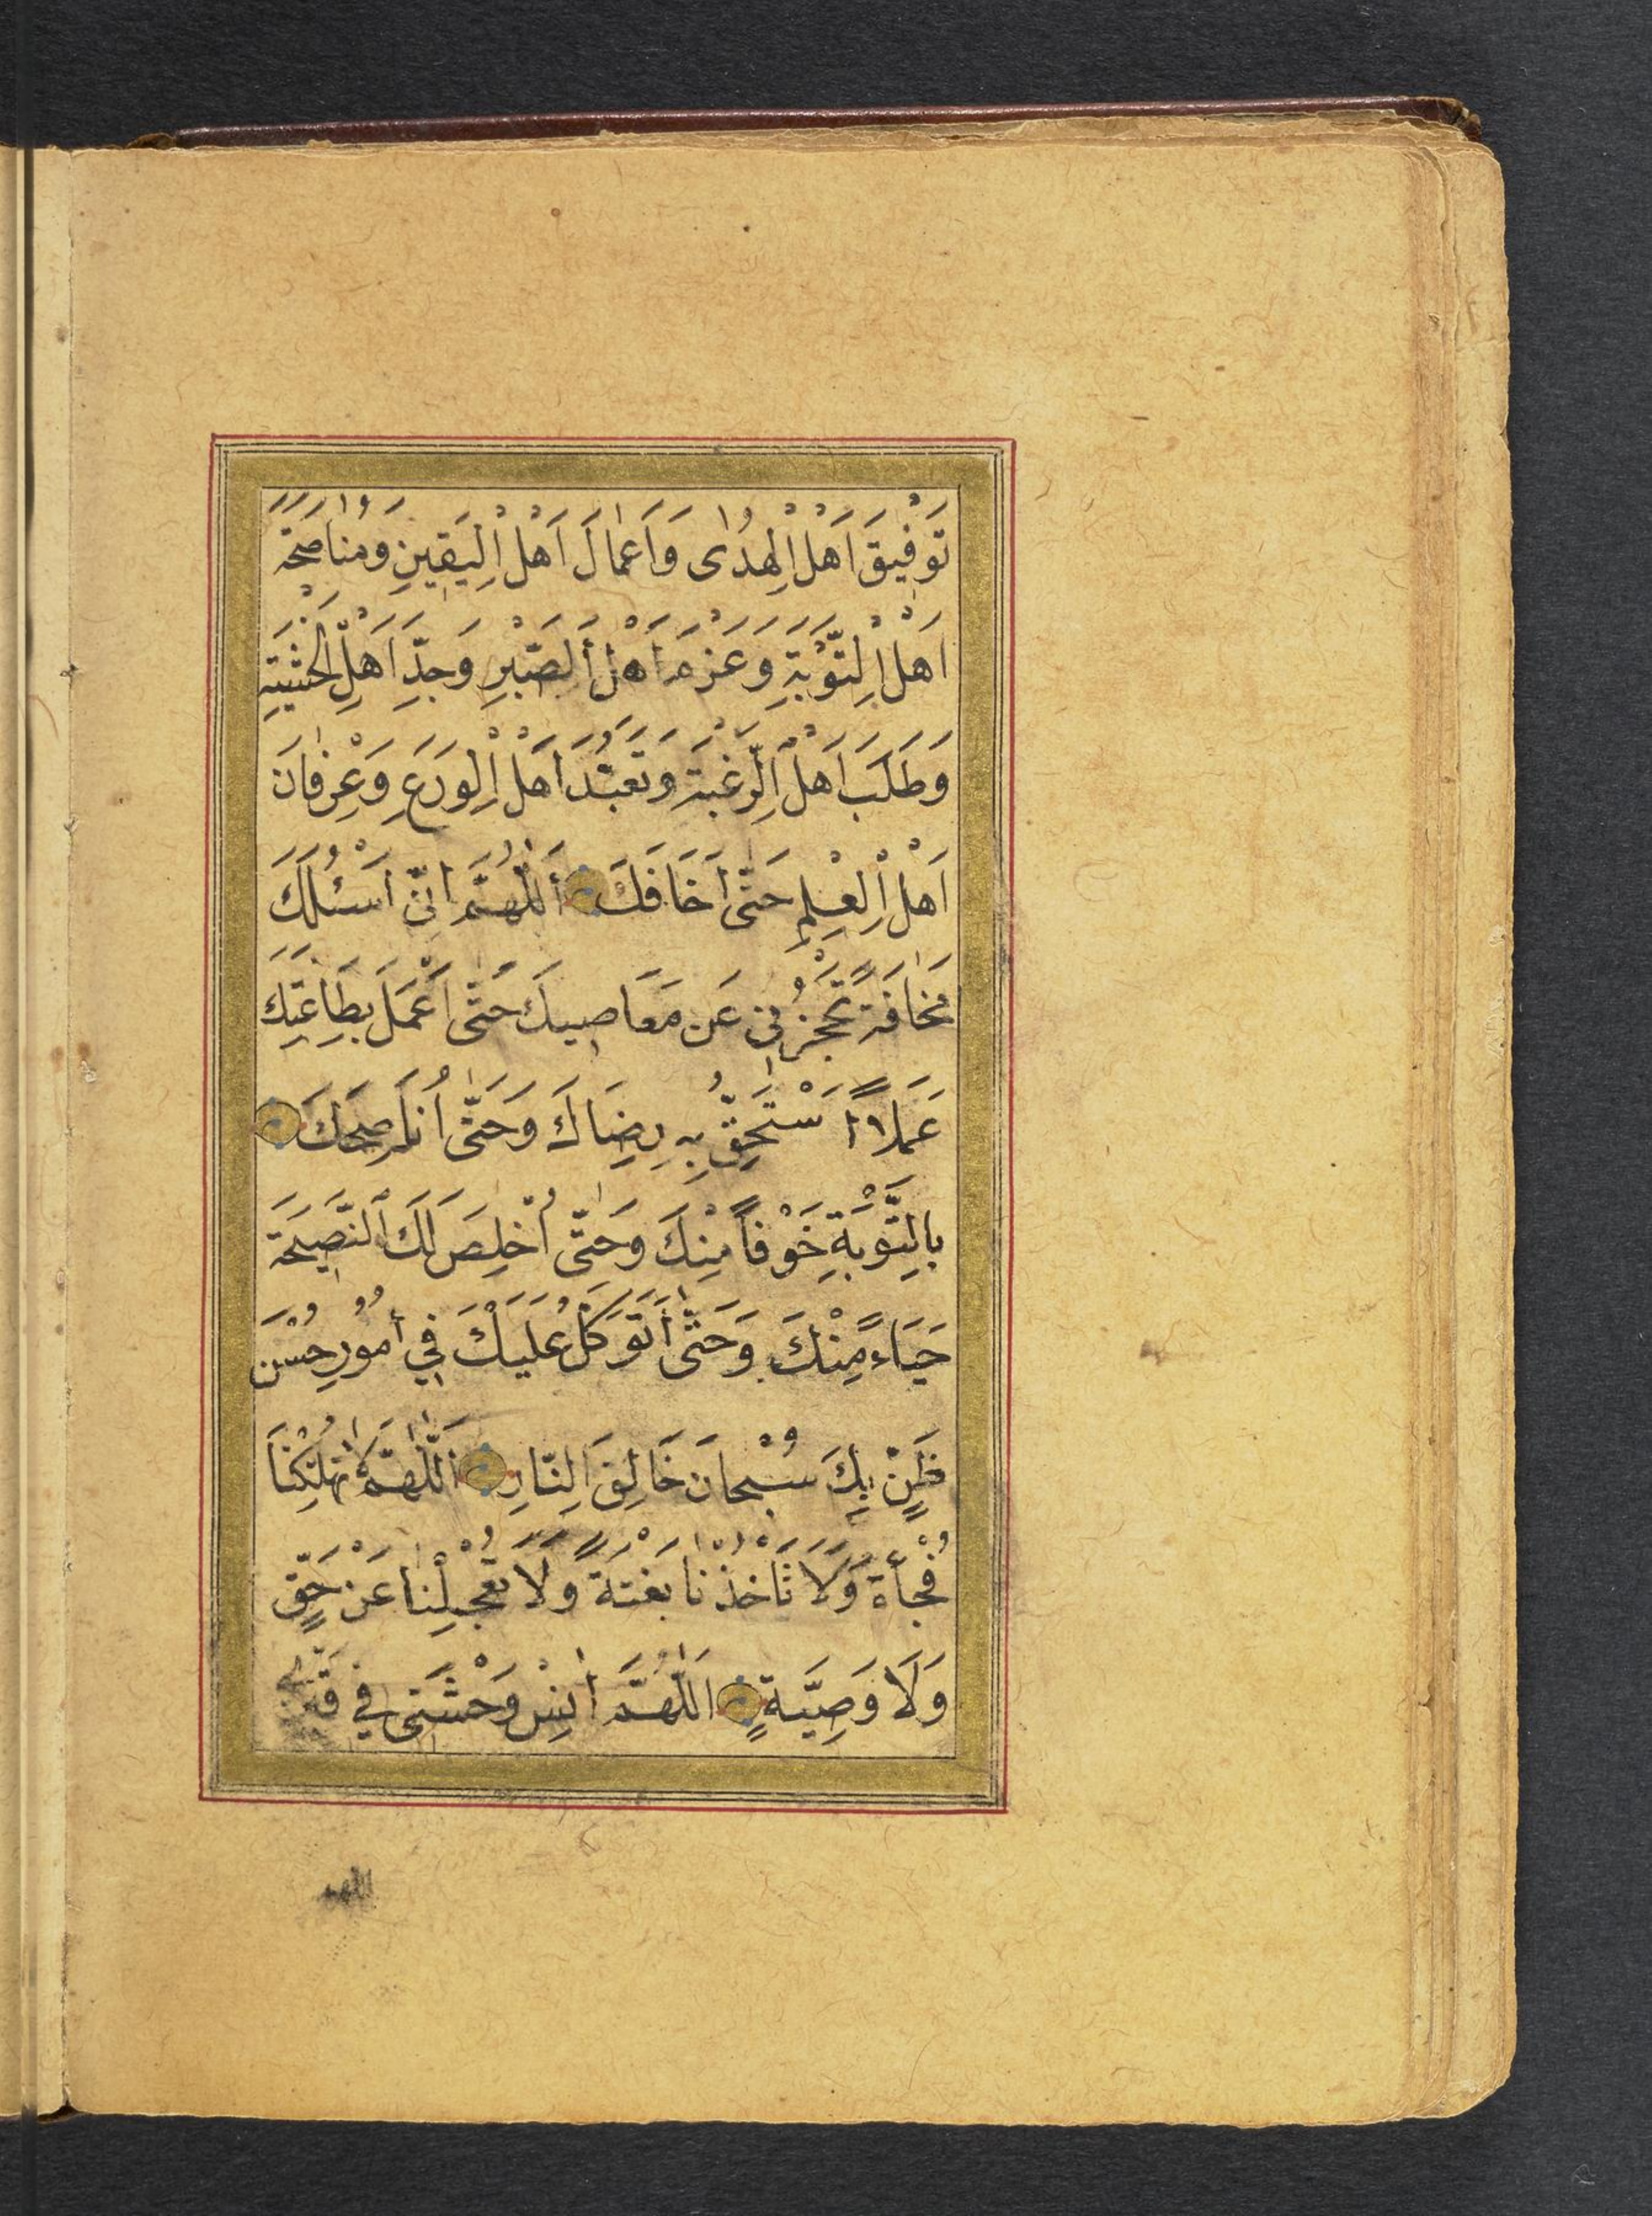 تَوْفِيقَ اَهْلِ الْهُدٰى وَاَعْمٰالَ اَهْلِ الْيَقِينِ وَمُنٰاصَحَةَ
اَهْلِ التَّوْبَةِ وَعَزْمَ اَهْلِ الصَّبْرِ وَجِدَّ اَهْلِ الْخَشْيَةِ
وَطَلَبَ اَهْلِ الرَّغْبَةِ وَتَعَبُّدَ اَهْلِ الْوَرَعِ وَعِرْفٰانَ
اَهْلِ الْعِلْمِ حَتّٰى اَخَافَكَ اَللّٰهُمَّ اِنّٖى اَسْئَلُكَ
مَخٰافَةً تَحْجُزُنٖى عَن مَعَاصِيكَ حَتّٰى اَعْمَلَ بِطَاعَتِكَ
عَمَلاً اَسْتَحِقُّ بِهِ رِضَاكَ وَحَتّٰى اُنَاصِحَكَ
بِالتَّوْبَةِ خَوْفاً مِنْكَ وَحَتّٰى اُخْلِصَ لَكَ النَّصِيحَةَ
حَيَاءً مِنْكَ وَحَتّٰى اَتَوَكَّلَ عَلَيْكَ فِي اُمُورِ حُسْنَ
ظَنٍّ بِكَ سُبْحَانَ خَالِقِ النَّارِ اَللّٰهُمَّ لَا تُهْلِكْنَا
فُجْأَةً وَلَا تَأْخُذْنَا بَغْتَةً وَلَا تُعْجِلْنٰا عَنْ حَقٍّ
وَلَا وَصِيَّةٍ اَللّٰهُمَّ اٰنِسْ وَحْشَتٖى فٖي
اللهم